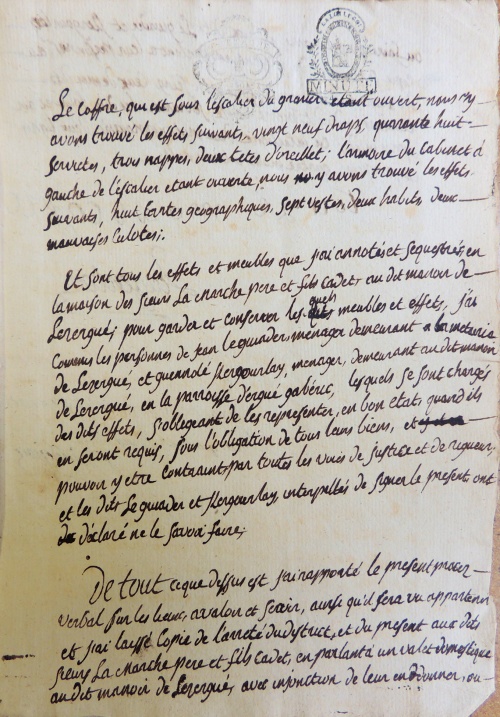 MINUTE
Le coffre, qui est sous l'escalier du grenier etant ouvert, nous y
avons trouvé les effets suivants, vingt neuf draps, quarente huit
serviettes, trois nappes, deux tetes d'oreillet; l'armoire du cabinet à
gauche de l'escalier etant ouverte, nous y avons trouvé les effets
suivants, huit cartes geographiques, sept vestes, deux habits, deux
mauvaises culotes;
Et sont tous les effets et meubles que j'ai annotés et sequestrés, en
la maison des sieurs La Marche pere et fils cadet, au dit manoir de
Lezergué; pour garder et conserver lesquels meubles et effets, j'ai
commis les personnes de jean le guader, menager demeurant a la metairie
de Lezergué, et guennolé Kergourlay, menager, demeurant au dit manoir
de Lezergué, en la parroisse d'ergué gaberic, lesquels se sont chargés
des dits effets, s'obligeant de les representer, en bon etat, quand ils
en seront requis, sous l'obligation de tous leurs biens, et
pouvoir y etre contraint par toutes les voies de justice et de rigueur,
et les dits Le guader et Kergourlay, interpellés de signer le present, ont
declaré ne le savoir faire;
De tout ce que dessus est j'ai rapporté le present procez
verbal sur les lieux, a valoir et servir, ainsi qu'il sera vu appartenir
et j'ai laissé copie de l'areté du district, et du present aux dits
sieurs La Marche pere et fils cadet, en parlant à un valet domestique
au dit manoir de Lezergué, avec injonction de leur en donner, ou